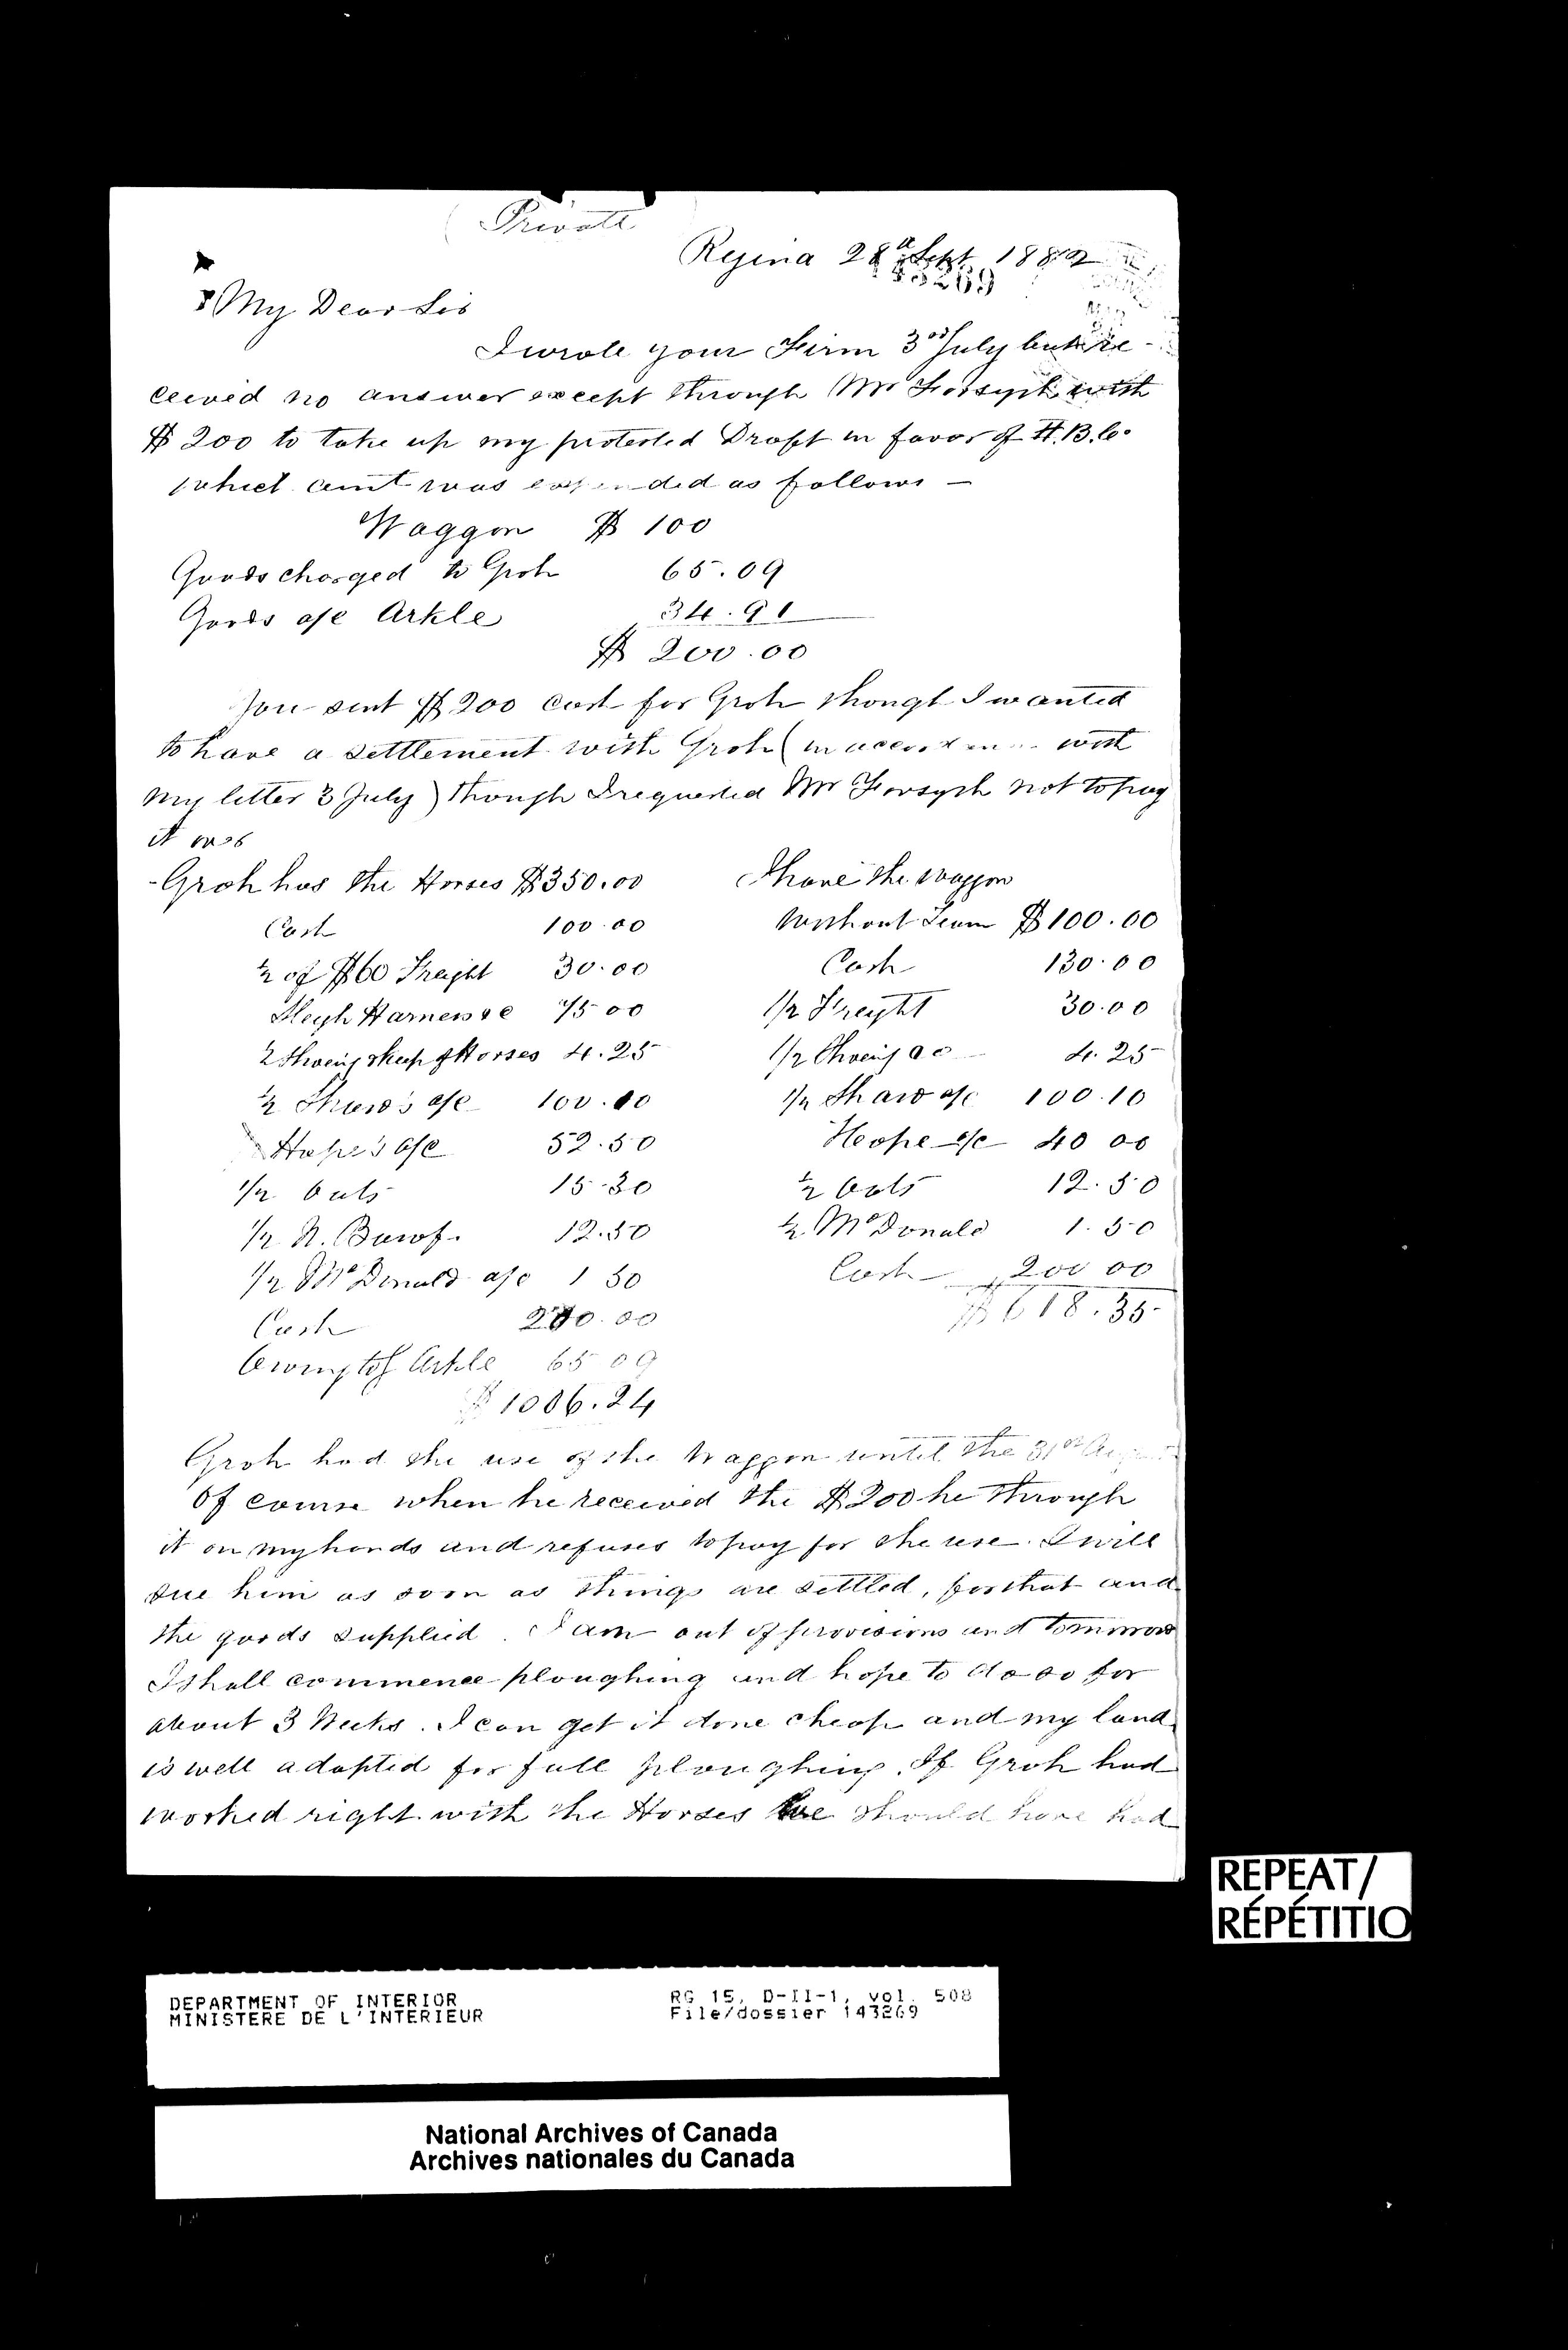 Private
Regina 28th Sept 1882
43269
My Dear Sir
I wrote your Firm 3rd July but re-
ceived no answer except through Mr Forsyth with
$200 to take up my protested Draft in favor of H.B.Co
which amt was expended as follows —
Waggon $ 100
Goods charged to Groh 65.09
Goods a/c Arkle 34.91
$ 200.00
You sent $200 cash for Groh though I wanted
to have a settlement with Groh (in accordance with
my letter 3 July) though I requested Mr Forsyth not to pay
it was
- Groh has the Horses $350.00
Cash 100.00
½ of $60 Freight 30.00
Sleigh Harness &c 75 00
½ Shoeing & keep of Horses 4.25
½ Shaw's a/c 100.10
Hope's a/c 52.50
1/2 Oats 15.30
1/2 N. 12.50
1/2 McDonald a/c 1 50
Cash 200.00
Owing to Arkle 65 09
$ 1006.24
I have the waggon
without Team $100.00
Cash 130.00
1/2 Freight 30.00
1/2 Shoeing &c 4.25
1/2 Shaw a/c 100.10
Hope a/c 40 00
½ Oats 12.50
½ McDonald 1.50
Cash 200 00
$ 618.35
Groh had the use of the waggon until the 31st August
Of course when he received the $200 he through
it on my hands and refuses to pay for the use. I will
sue him as soon as things are settled, for that and
the goods supplied. I am out of provisions and tommorow
I shall commence ploughing and hope to do so for
about 3 Weeks. I can get it done cheap and my land
is well adapted for fall ploughing. If Groh had
worked right with the Horses we should have had
REPEAT/
RÉPÉTITIO
DEPARTMENT OF INTERIOR
MINISTERE DE L'INTERIEUR
RG 15, D-II-1, vol. 508
File/dossier 143269
National Archives of Canada
Archives nationales du Canada